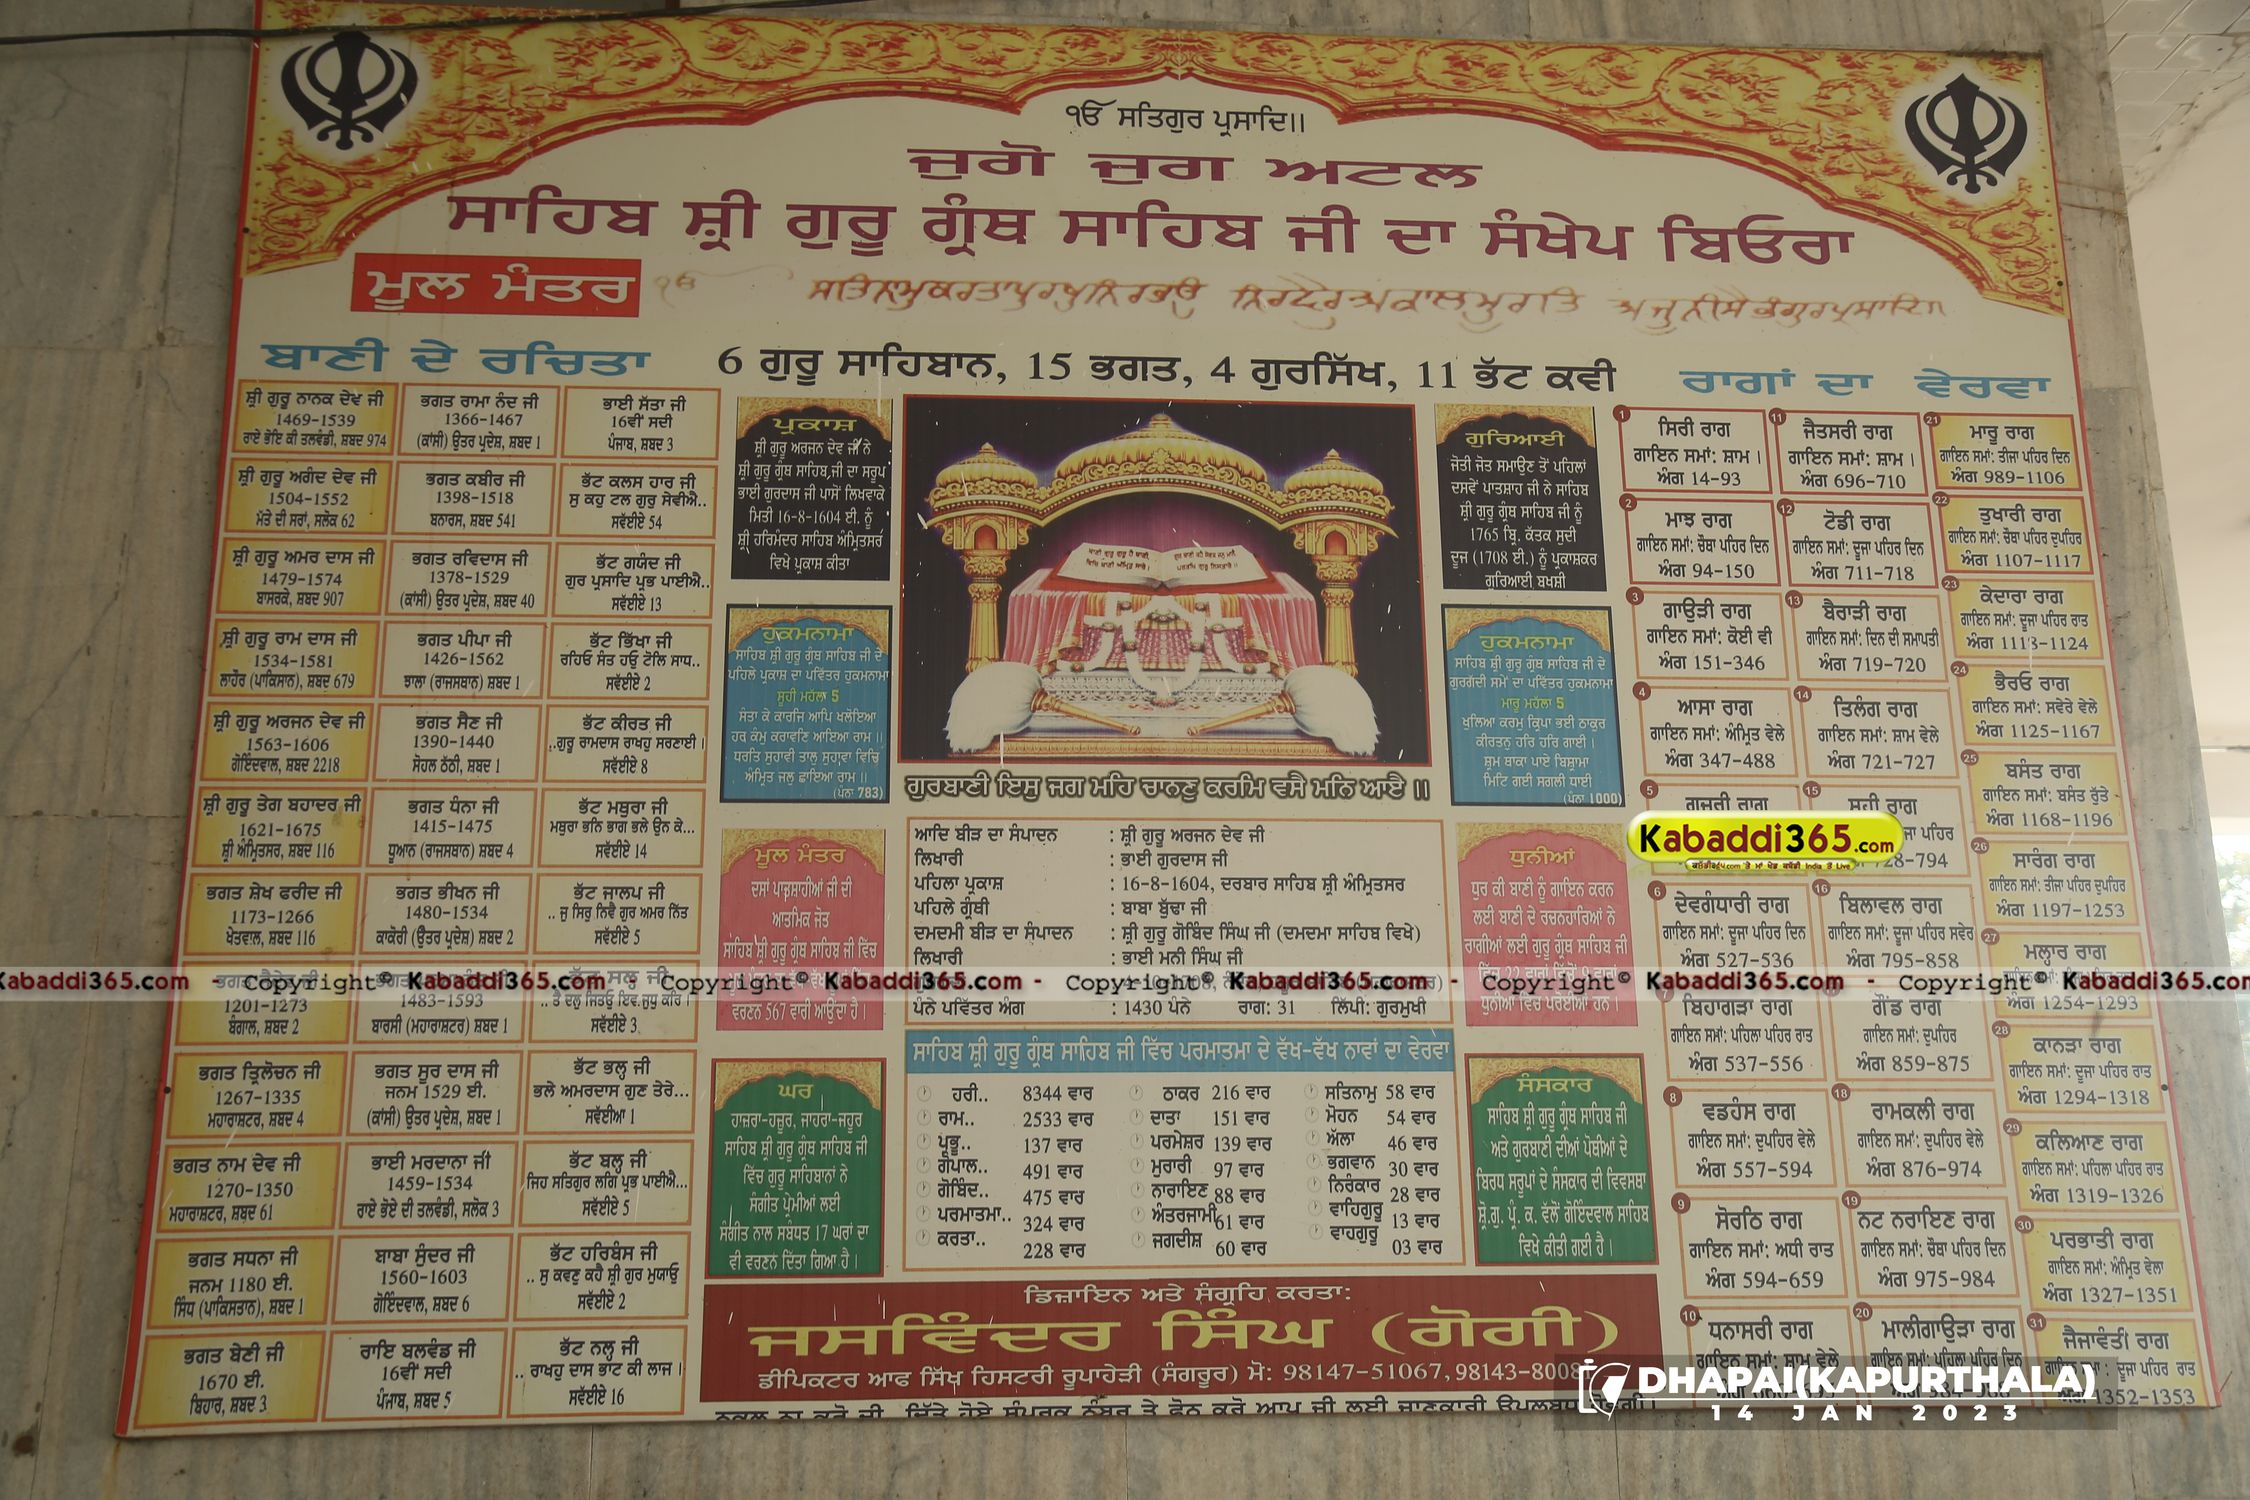 ੴ ਸਤਿਗੁਰ ਪ੍ਰਸਾਦਿ।।
ਜੁਗੋ ਜੁਗ ਅਟਲ
ਸਾਹਿਬ ਸ਼੍ਰੀ ਗੁਰੂ ਗ੍ਰੰਥ ਸਾਹਿਬ ਜੀ ਦਾ ਸੰਖੇਪ ਬਿਓਰਾ
ਮੂਲ ਮੰਤਰ
ੴ ਸਤਿਨਾਮੁਕਰਤਾਪੁਰਖੁਨਿਰਭਉ ਨਿਰਵੈਰੁਅਕਾਲਮੂਰਤਿ ਅਜੂਨੀਸੈਭੰਗੁਰਪ੍ਰਸਾਦਿ॥
ਬਾਣੀ ਦੇ ਰਚਿਤਾ
6 ਗੁਰੂ ਸਾਹਿਬਾਨ, 15 ਭਗਤ, 4 ਗੁਰਸਿੱਖ, 11 ਭੱਟ ਕਵੀ
ਰਾਗਾਂ ਦਾ ਵੇਰਵਾ
ਸ਼੍ਰੀ ਗੁਰੂ ਨਾਨਕ ਦੇਵ ਜੀ
1469-1539
ਰਾਏ ਭੋਇ ਕੀ ਤਲਵੰਡੀ, ਸ਼ਬਦ 974
ਭਗਤ ਰਾਮਾ ਨੰਦ ਜੀ
1366-1467
(ਕਾਂਸੀ) ਉਤਰ ਪ੍ਰਦੇਸ਼, ਸ਼ਬਦ 1
ਭਾਈ ਸੱਤਾ ਜੀ
16ਵੀਂ ਸਦੀ
ਪੰਜਾਬ, ਸ਼ਬਦ 3
ਸ਼੍ਰੀ ਗੁਰੂ ਅਗੰਦ ਦੇਵ ਜੀ
1504-1552
ਮੱਤੇ ਦੀ ਸਰਾਂ, ਸਲੋਕ 62
ਭਗਤ ਕਬੀਰ ਜੀ
1398-1518
ਬਨਾਰਸ, ਸ਼ਬਦ 541
ਭੱਟ ਕਲਸ ਹਾਰ ਜੀ
ਸੁ ਕਹੁ ਟਲ ਗੁਰੁ ਸੇਵੀਐ..
ਸਵੱਈਏ 54
ਸ਼੍ਰੀ ਗੁਰੂ ਅਮਰ ਦਾਸ ਜੀ
1479-1574
ਬਾਸਰਕੇ, ਸ਼ਬਦ 907
ਭਗਤ ਰਵਿਦਾਸ ਜੀ
1378-1529
(ਕਾਂਸੀ) ਉਤਰ ਪ੍ਰਦੇਸ਼, ਸ਼ਬਦ 40
ਭੱਟ ਗਯੰਦ ਜੀ
ਗੁਰ ਪ੍ਰਸਾਦਿ ਪ੍ਰਭ ਪਾਈਐ..
ਸਵੱਈਏ 13
ਸ਼੍ਰੀ ਗੁਰੂ ਰਾਮ ਦਾਸ ਜੀ
1534-1581
ਲਾਹੌਰ (ਪਾਕਿਸਾਨ), ਸ਼ਬਦ 679
ਭਗਤ ਪੀਪਾ ਜੀ
1426-1562
ਝਾਲਾ (ਰਾਜਸਥਾਨ) ਸ਼ਬਦ 1
ਭੱਟ ਭਿੱਖਾ ਜੀ
ਰਹਿਓ ਸੰਤ ਹਉ ਟੋਲਿ ਸਾਧ..
ਸਵੱਈਏ 2
ਸ਼੍ਰੀ ਗੁਰੂ ਅਰਜਨ ਦੇਵ ਜੀ
1563-1606
ਗੋਇੰਦਵਾਲ, ਸ਼ਬਦ 2218
ਭਗਤ ਸੈਣ ਜੀ
1390-1440
ਸੋਹਲ ਠੱਠੀ, ਸ਼ਬਦ 1
ਭੱਟ ਕੀਰਤ ਜੀ
..ਗੁਰੂ ਰਾਮਦਾਸ ਰਾਖਹੁ ਸਰਣਾਈ।
ਸਵੱਈਏ 8
ਸ਼੍ਰੀ ਗੁਰੂ ਤੇਗ ਬਹਾਦਰ ਜੀ
1621-1675
ਸ਼੍ਰੀ ਅੰਮ੍ਰਿਤਸਰ, ਸ਼ਬਦ 116
ਭਗਤ ਧੰਨਾ ਜੀ
1415-1475
ਧੂਆਨ (ਰਾਜਸਥਾਨ) ਸ਼ਬਦ 4
ਭੱਟ ਮਥੁਰਾ ਜੀ
ਮਥੁਰਾ ਭਨਿ ਭਾਗ ਭਲੇ ਉਨ ਕੇ...
ਸਵੱਈਏ 14
ਭਗਤ ਸ਼ੇਖ ਫਰੀਦ ਜੀ
1173-1266
ਖੇਤਵਾਲ, ਸ਼ਬਦ 116
ਭਗਤ ਭੀਖਨ ਜੀ
1480-1534
ਕਾਕੋਰੀ (ਉਤਰ ਪ੍ਰਦੇਸ਼) ਸ਼ਬਦ 2
ਭੱਟ ਜਾਲਪ ਜੀ
.. ਜੁ ਸਿਰੁ ਨਿਵੈ ਗੁਰ ਅਮਰ ਨਿੱਤ
ਸਵੱਈਏ 5
1201-1273
ਬੰਗਾਲ, ਸ਼ਬਦ 2
1483-1593
ਬਾਰਸੀ (ਮਹਾਰਾਸ਼ਟਰ) ਸ਼ਬਦ 1
ਸਵੱਈਏ 3
ਭਗਤ ਤ੍ਰਿਲੋਚਨ ਜੀ
1267-1335
ਮਹਾਰਾਸ਼ਟਰ, ਸ਼ਬਦ 4
ਭਗਤ ਸੂਰ ਦਾਸ ਜੀ
ਜਨਮ 1529 ਈ.
(ਕਾਂਸੀ) ਉਤਰ ਪ੍ਰਦੇਸ਼, ਸ਼ਬਦ 1
ਭੱਟ ਭਲ੍ਹ ਜੀ
ਭਲੇ ਅਮਰਦਾਸ ਗੁਣ ਤੇਰੇ...
ਸਵੱਈਆ 1
ਭਗਤ ਨਾਮ ਦੇਵ ਜੀ
1270-1350
ਮਹਾਰਾਸ਼ਟਰ, ਸ਼ਬਦ 61
ਭਾਈ ਮਰਦਾਨਾ ਜੀ
1459-1534
ਰਾਏ ਭੋਏ ਦੀ ਤਲਵੰਡੀ, ਸਲੋਕ 3
ਭੱਟ ਬਲ੍ਹ ਜੀ
ਜਿਹ ਸਤਿਗੁਰ ਲਗਿ ਪ੍ਰਭ ਪਾਈਐ...
ਸਵੱਈਏ 5
ਭਗਤ ਸਧਨਾ ਜੀ
ਜਨਮ 1180 ਈ.
ਸਿੰਧ (ਪਾਕਿਸਤਾਨ), ਸ਼ਬਦ 1
ਬਾਬਾ ਸੁੰਦਰ ਜੀ
1560-1603
ਗੋਇੰਦਵਾਲ, ਸ਼ਬਦ 6
ਭੱਟ ਹਰਿਬੰਸ ਜੀ
.. ਸੁ ਕਵਣੁ ਕਹੈ ਸ਼੍ਰੀ ਗੁਰ ਮੁਯਾਉ
ਸਵੱਈਏ 2
ਭਗਤ ਬੇਣੀ ਜੀ
1670 ਈ.
ਬਿਹਾਰ, ਸ਼ਬਦ 3
ਰਾਇ ਬਲਵੰਡ ਜੀ
16ਵੀਂ ਸਦੀ
ਪੰਜਾਬ, ਸ਼ਬਦ 5
ਭੱਟ ਨਲ੍ਹ ਜੀ
.. ਰਾਖਹੁ ਦਾਸ ਭਾਟ ਕੀ ਲਾਜ।
ਸਵੱਈਏ 16
ਪ੍ਰਕਾਸ਼
ਸ਼੍ਰੀ ਗੁਰੂ ਅਰਜਨ ਦੇਵ ਜੀ ਨੇ
ਸ਼੍ਰੀ ਗੁਰੂ ਗ੍ਰੰਥ ਸਾਹਿਬ ਜੀ ਦਾ ਸਰੂਪ
ਭਾਈ ਗੁਰਦਾਸ ਜੀ ਪਾਸੋਂ ਲਿਖਵਾਕੇ
ਮਿਤੀ 16-8-1604 ਈ. ਨੂੰ
ਸ਼੍ਰੀ ਹਰਿਮੰਦਰ ਸਾਹਿਬ ਅੰਮ੍ਰਿਤਸਰ
ਵਿਖੇ ਪ੍ਰਕਾਸ਼ ਕੀਤਾ
ਹੁਕਮਨਾਮਾ
ਸਾਹਿਬ ਸ਼੍ਰੀ ਗੁਰੂ ਗ੍ਰੰਥ ਸਾਹਿਬ ਜੀ ਦੇ
ਪਹਿਲੇ ਪ੍ਰਕਾਸ਼ ਦਾ ਪਵਿੱਤਰ ਹੁਕਮਨਾਮਾ
ਸੂਹੀ ਮਹੱਲਾ 5
ਸੰਤਾ ਕੇ ਕਾਰਜਿ ਆਪਿ ਖਲੋਇਆ
ਹਰ ਕੰਮੁ ਕਰਾਵਣਿ ਆਇਆ ਰਾਮ।।
ਧਰਤਿ ਸੁਹਾਵੀ ਤਾਲੁ ਸੁਹਾਵਾ ਵਿਚਿ
ਅੰਮ੍ਰਿਤ ਜਲੁ ਛਾਇਆ ਰਾਮ।।
(ਪੰਨਾ 783)
ਮੂਲ ਮੰਤਰ
ਦਸਾਂ ਪਾਤਸ਼ਾਹੀਆਂ ਜੀ ਦੀ
ਆਤਮਿਕ ਜੋਤ
ਸਾਹਿਬ ਸ਼੍ਰੀ ਗੁਰੂ ਗ੍ਰੰਥ ਸਾਹਿਬ ਜੀ ਵਿੱਚ
ਵਰਣਨ 567 ਵਾਰੀ ਆਉਂਦਾ ਹੈ।
ਘਰ
ਹਾਜ਼ਰਾ-ਹਜ਼ੂਰ, ਜਾਹਰਾ-ਜਹੂਰ
ਸਾਹਿਬ ਸ਼੍ਰੀ ਗੁਰੂ ਗ੍ਰੰਥ ਸਾਹਿਬ ਜੀ
ਵਿੱਚ ਗੁਰੂ ਸਾਹਿਬਾਨਾਂ ਨੇ
ਸੰਗੀਤ ਪ੍ਰੇਮੀਆਂ ਲਈ
ਸੰਗੀਤ ਨਾਲ ਸਬੰਧਤ 17 ਘਰਾਂ ਦਾ
ਵੀ ਵਰਣਨ ਦਿੱਤਾ ਗਿਆ ਹੈ।
ਗੁਰਬਾਣੀ ਇਸੁ ਜਗ ਮਹਿ ਚਾਨਣੁ ਕਰਮਿ ਵਸੈ ਮਨਿ ਆਏ।।
ਆਦਿ ਬੀੜ ਦਾ ਸੰਪਾਦਨ : ਸ਼੍ਰੀ ਗੁਰੂ ਅਰਜਨ ਦੇਵ ਜੀ
ਲਿਖਾਰੀ : ਭਾਈ ਗੁਰਦਾਸ ਜੀ
ਪਹਿਲਾ ਪ੍ਰਕਾਸ਼ : 16-8-1604, ਦਰਬਾਰ ਸਾਹਿਬ ਸ਼੍ਰੀ ਅੰਮ੍ਰਿਤਸਰ
ਪਹਿਲੇ ਗ੍ਰੰਥੀ : ਬਾਬਾ ਬੁੱਢਾ ਜੀ
ਦਮਦਮੀ ਬੀੜ ਦਾ ਸੰਪਾਦਨ : ਸ਼੍ਰੀ ਗੁਰੂ ਗੋਬਿੰਦ ਸਿੰਘ ਜੀ (ਦਮਦਮਾ ਸਾਹਿਬ ਵਿਖੇ)
ਲਿਖਾਰੀ : ਭਾਈ ਮਨੀ ਸਿੰਘ ਜੀ
ਪੰਨੇ ਪਵਿੱਤਰ ਅੰਗ : 1430 ਪੰਨੇ ਰਾਗ: 31 ਲਿੱਪੀ: ਗੁਰਮੁਖੀ
ਸਾਹਿਬ ਸ਼੍ਰੀ ਗੁਰੂ ਗ੍ਰੰਥ ਸਾਹਿਬ ਜੀ ਵਿੱਚ ਪਰਮਾਤਮਾ ਦੇ ਵੱਖ-ਵੱਖ ਨਾਵਾਂ ਦਾ ਵੇਰਵਾ
ਹਰੀ.. 8344 ਵਾਰ ਠਾਕਰ 216 ਵਾਰ ਸਤਿਨਾਮੁ 58 ਵਾਰ
ਰਾਮ.. 2533 ਵਾਰ ਦਾਤਾ 151 ਵਾਰ ਮੋਹਨ 54 ਵਾਰ
ਪ੍ਰਭੂ.. 137 ਵਾਰ ਪਰਮੇਸ਼ਰ 139 ਵਾਰ ਅੱਲਾ 46 ਵਾਰ
ਗੋਪਾਲ.. 491 ਵਾਰ ਮੁਰਾਰੀ 97 ਵਾਰ ਭਗਵਾਨ 30 ਵਾਰ
ਗੋਬਿੰਦ.. 475 ਵਾਰ ਨਾਰਾਇਣ 88 ਵਾਰ ਨਿਰੰਕਾਰ 28 ਵਾਰ
ਪਰਮਾਤਮਾ.. 324 ਵਾਰ ਅੰਤਰਜਾਮੀ 61 ਵਾਰ ਵਾਹਿਗੁਰੂ 13 ਵਾਰ
ਕਰਤਾ.. 228 ਵਾਰ ਜਗਦੀਸ਼ 60 ਵਾਰ ਵਾਹਗੁਰੂ 03 ਵਾਰ
ਗੁਰਿਆਈ
ਜੋਤੀ ਜੋਤ ਸਮਾਉਣ ਤੋਂ ਪਹਿਲਾਂ
ਦਸਵੇਂ ਪਾਤਸ਼ਾਹ ਜੀ ਨੇ ਸਾਹਿਬ
ਸ਼੍ਰੀ ਗੁਰੂ ਗ੍ਰੰਥ ਸਾਹਿਬ ਜੀ ਨੂੰ
1765 ਬਿ੍. ਕੱਤਕ ਸੁਦੀ
ਦੂਜ (1708 ਈ.) ਨੂੰ ਪ੍ਰਕਾਸ਼ਕਰ
ਗੁਰਿਆਈ ਬਖਸ਼ੀ
ਹੁਕਮਨਾਮਾ
ਸਾਹਿਬ ਸ਼੍ਰੀ ਗੁਰੂ ਗ੍ਰੰਥ ਸਾਹਿਬ ਜੀ ਦੇ
ਗੁਰਗੱਦੀ ਸਮੇਂ ਦਾ ਪਵਿੱਤਰ ਹੁਕਮਨਾਮਾ
ਮਾਰੂ ਮਹੱਲਾ 5
ਖੁਲਿਆ ਕਰਮੁ ਕ੍ਰਿਪਾ ਭਈ ਠਾਕੁਰ
ਕੀਰਤਨੁ ਹਰਿ ਹਰਿ ਗਾਈ।
ਸ਼੍ਰਮ ਥਾਕਾ ਪਾਏ ਬਿਸ਼੍ਰਾਮਾ
ਮਿਟਿ ਗਈ ਸਗਲੀ ਧਾਈ
(ਪੰਨਾ 1000)
ਧੁਨੀਆਂ
ਧੁਰ ਕੀ ਬਾਣੀ ਨੂੰ ਗਾਇਨ ਕਰਨ
ਲਈ ਬਾਣੀ ਦੇ ਰਚਨਹਾਰਿਆਂ ਨੇ
ਰਾਗੀਆਂ ਲਈ ਗੁਰੂ ਗ੍ਰੰਥ ਸਾਹਿਬ ਜੀ
ਧੁਨੀਆਂ ਵਿਚ ਪਰੋਈਆਂ ਹਨ।
ਸੰਸਕਾਰ
ਸਾਹਿਬ ਸ਼੍ਰੀ ਗੁਰੂ ਗ੍ਰੰਥ ਸਾਹਿਬ ਜੀ
ਅਤੇ ਗੁਰਬਾਣੀ ਦੀਆਂ ਪੋਥੀਆਂ ਦੇ
ਬਿਰਧ ਸਰੂਪਾਂ ਦੇ ਸੰਸਕਾਰ ਦੀ ਵਿਵਸਥਾ
ਸ਼੍ਰੋ.ਗੁ. ਪ੍ਰੰ. ਕ. ਵੱਲੋਂ ਗੋਇੰਦਵਾਲ ਸਾਹਿਬ
ਵਿਖੇ ਕੀਤੀ ਗਈ ਹੈ।
1 ਸਿਰੀ ਰਾਗ
ਗਾਇਨ ਸਮਾਂ: ਸ਼ਾਮ।
ਅੰਗ 14-93
11 ਜੈਤਸਰੀ ਰਾਗ
ਗਾਇਨ ਸਮਾਂ: ਸ਼ਾਮ।
ਅੰਗ 696-710
21 ਮਾਰੂ ਰਾਗ
ਗਾਇਨ ਸਮਾਂ: ਤੀਜਾ ਪਹਿਰ ਦਿਨ
ਅੰਗ 989-1106
2 ਮਾਝ ਰਾਗ
ਗਾਇਨ ਸਮਾਂ: ਚੌਥਾ ਪਹਿਰ ਦਿਨ
ਅੰਗ 94-150
12 ਟੋਡੀ ਰਾਗ
ਗਾਇਨ ਸਮਾਂ: ਦੂਜਾ ਪਹਿਰ ਦਿਨ
ਅੰਗ 711-718
22 ਤੁਖਾਰੀ ਰਾਗ
ਗਾਇਨ ਸਮਾਂ: ਚੌਥਾ ਪਹਿਰ ਦੁਪਹਿਰ
ਅੰਗ 1107-1117
3 ਗਾਉੜੀ ਰਾਗ
ਗਾਇਨ ਸਮਾਂ: ਕੋਈ ਵੀ
ਅੰਗ 151-346
13 ਬੈਰਾੜੀ ਰਾਗ
ਗਾਇਨ ਸਮਾਂ: ਦਿਨ ਦੀ ਸਮਾਪਤੀ
ਅੰਗ 719-720
23 ਕੇਦਾਰਾ ਰਾਗ
ਗਾਇਨ ਸਮਾਂ: ਦੂਜਾ ਪਹਿਰ ਰਾਤ
ਅੰਗ 1118-1124
4 ਆਸਾ ਰਾਗ
ਗਾਇਨ ਸਮਾਂ: ਅੰਮ੍ਰਿਤ ਵੇਲੇ
ਅੰਗ 347-488
14 ਤਿਲੰਗ ਰਾਗ
ਗਾਇਨ ਸਮਾਂ: ਸ਼ਾਮ ਵੇਲੇ
ਅੰਗ 721-727
24 ਭੈਰਓ ਰਾਗ
ਗਾਇਨ ਸਮਾਂ: ਸਵੇਰੇ ਵੇਲੇ
ਅੰਗ 1125-1167
5 ਗੂਜਰੀ ਰਾਗ
15 ਸੂਹੀ ਰਾਗ
ਪਹਿਰ
25 ਬਸੰਤ ਰਾਗ
ਗਾਇਨ ਸਮਾਂ: ਬਸੰਤ ਰੁੱਤੇ
ਅੰਗ 1168-1196
Kabaddi365.com
6 ਦੇਵਗੰਧਾਰੀ ਰਾਗ
ਗਾਇਨ ਸਮਾਂ: ਦੂਜਾ ਪਹਿਰ ਦਿਨ
ਅੰਗ 527-536
16 ਬਿਲਾਵਲ ਰਾਗ
ਗਾਇਨ ਸਮਾਂ: ਦੂਜਾ ਪਹਿਰ ਸਵੇਰ
ਅੰਗ 795-858
26 ਸਾਰੰਗ ਰਾਗ
ਗਾਇਨ ਸਮਾਂ: ਤੀਜਾ ਪਹਿਰ ਦੁਪਹਿਰ
ਅੰਗ 1197-1253
7 ਬਿਹਾਗੜਾ ਰਾਗ
ਗਾਇਨ ਸਮਾਂ: ਪਹਿਲਾ ਪਹਿਰ ਰਾਤ
ਅੰਗ 537-556
ਗੌਂਡ ਰਾਗ
ਗਾਇਨ ਸਮਾਂ: ਦੁਪਹਿਰ
ਅੰਗ 859-875
27 ਮਲ੍ਹਾਰ ਰਾਗ
ਅੰਗ 1254-1293
8 ਵਡਹੰਸ ਰਾਗ
ਗਾਇਨ ਸਮਾਂ: ਦੁਪਹਿਰ ਵੇਲੇ
ਅੰਗ 557-594
18 ਰਾਮਕਲੀ ਰਾਗ
ਗਾਇਨ ਸਮਾਂ: ਦੁਪਹਿਰ ਵੇਲੇ
ਅੰਗ 876-974
28 ਕਾਨੜਾ ਰਾਗ
ਗਾਇਨ ਸਮਾਂ: ਦੂਜਾ ਪਹਿਰ ਰਾਤ
ਅੰਗ 1294-1318
9 ਸੋਰਠਿ ਰਾਗ
ਗਾਇਨ ਸਮਾਂ: ਅਧੀ ਰਾਤ
ਅੰਗ 594-659
19 ਨਟ ਨਰਾਇਣ ਰਾਗ
ਗਾਇਨ ਸਮਾਂ: ਚੌਥਾ ਪਹਿਰ ਦਿਨ
ਅੰਗ 975-984
29 ਕਲਿਆਣ ਰਾਗ
ਗਾਇਨ ਸਮਾਂ: ਪਹਿਲਾ ਪਹਿਰ ਰਾਤ
ਅੰਗ 1319-1326
10 ਧਨਾਸਰੀ ਰਾਗ
ਗਾਇਨ ਸਮਾਂ: ਸ਼ਾਮ ਵੇਲੇ
20 ਮਾਲੀਗਾਉੜਾ ਰਾਗ
ਗਾਇਨ ਸਮਾਂ: ਪਹਿਲਾ ਪਹਿਰ ਦਿਨ
30 ਪਰਭਾਤੀ ਰਾਗ
ਗਾਇਨ ਸਮਾਂ: ਅੰਮ੍ਰਿਤ ਵੇਲਾ
ਅੰਗ 1327-1351
31 ਜੈਜਾਵੰਤੀ ਰਾਗ
ਦੂਜਾ ਪਹਿਰ ਰਾਤ
1352-1353
Kabaddi365.com - Copyright© Kabaddi365.com - Copyright© Kabaddi365.com - Copyright© Kabaddi365.com - Copyright© Kabaddi365.com - Copyright© Kabaddi365.com
ਡਿਜ਼ਾਇਨ ਅਤੇ ਸੰਗ੍ਰਹਿ ਕਰਤਾ:
ਜਸਵਿੰਦਰ ਸਿੰਘ (ਗੋਗੀ)
ਡੀਪਿਕਟਰ ਆਫ ਸਿੱਖ ਹਿਸਟਰੀ ਰੂਪਾਹੇੜੀ (ਸੰਗਰੂਰ) ਮੋ: 98147-51067, 98143-8008
ਨਕਲ ਨਾ ਕਰੋ ਜੀ, ਦਿੱਤੇ ਹੋਏ ਸੰਪਰਕ ਨੰਬਰ ਤੇ ਫੋਨ ਕਰੋ ਆਪ ਜੀ ਲਈ ਜਾਣਕਾਰੀ
DHAPAI(KAPURTHALA)
14 JAN 2023